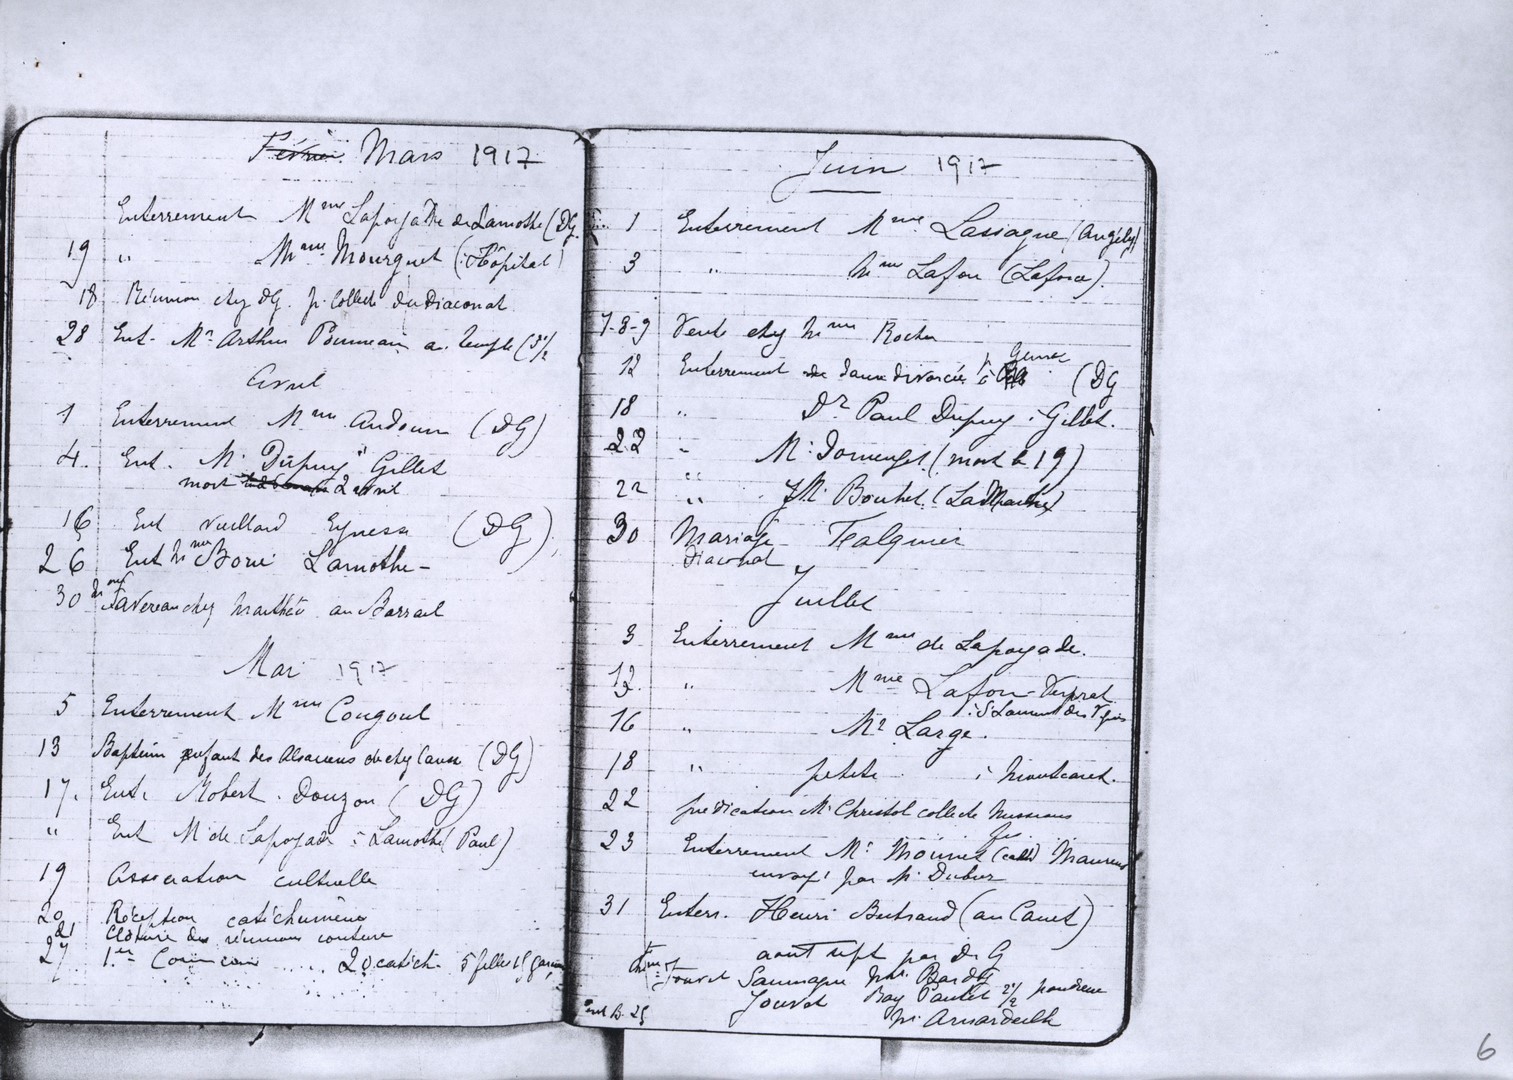 Février Mars 1917
Enterrement Mme Lapoyade de Lamothe (DG
19 " Mme Mourguet (Hôpital)
18 Réunion chez DG. pr Collecte du Diaconat
28 Ent. Mr Arthur au temple (3 1/2
Avril
1 Enterrement Mme Audouin (DG)
4. Ent. M. Dupuy à Gillet
mort 2 avril
16 Ent vieillard Eynesse (DG)
26 Ent Mme Lamothe -
30 Favereau chez Mathéo au Barrail
Mai 1917
5 Enterrement Mme Cougoul
13 Baptême enfant des Alsaciens de chez (DG)
17. Ent. Robert Douzon (DG)
" Ent M de Lapoyade à Lamothe (Paul)
19 Association cultuelle
20 Réception catéchumènes
21 Clôture des réunions couture
27 1er Comm 20 catéch. 5 filles 15 garçons
Juin 1917
1 Enterrement Mme Lassagne (Angély)
3 " Mme Lafon (Laforce).
7-8-9 Vente chez Mme Rocher
12 Enterrement de dame divorcée à (DG
18 " Dr Paul Dupuy à Gillet.
22 " M. Domenget (mort le 19)
22 " Boutet (
30 Mariage Falguier
Diaconat
Juillet
3 Enterrement Mme de Lapoyade.
12. " Mme Lafon-
à St Laurent des Vignes
16 " Mr Large.
18 " petite à Montcaret.
22 prédication M. Christol collecte Missions
23 Enterrement Mr Mounet
envoyé par M.
31 Enterr. Henri Bertrand (au Canet)
août sept par D. G
Jouvet Saumagne Mme
Jouvet
Mr Arnardeilh
6